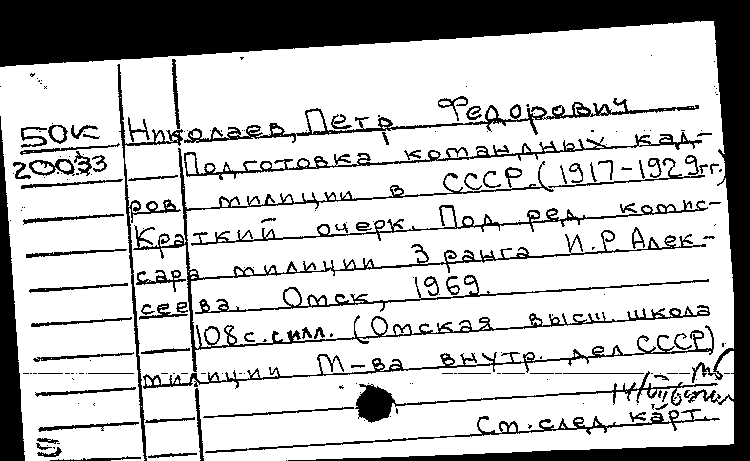 50к Николаев, Петр Федорович
20033 Подготовка командных кад-
ров милиции в СССР.(1917-1929гг.)
Краткий очерк. Под ред. комис-
сара милиции 3 ранга И.Р.Алек-
сеева. Омск, 1969.
108с.силл. (Омская высш. школа
милиции М-ва внутр. дел СССР).
См.след. карт.